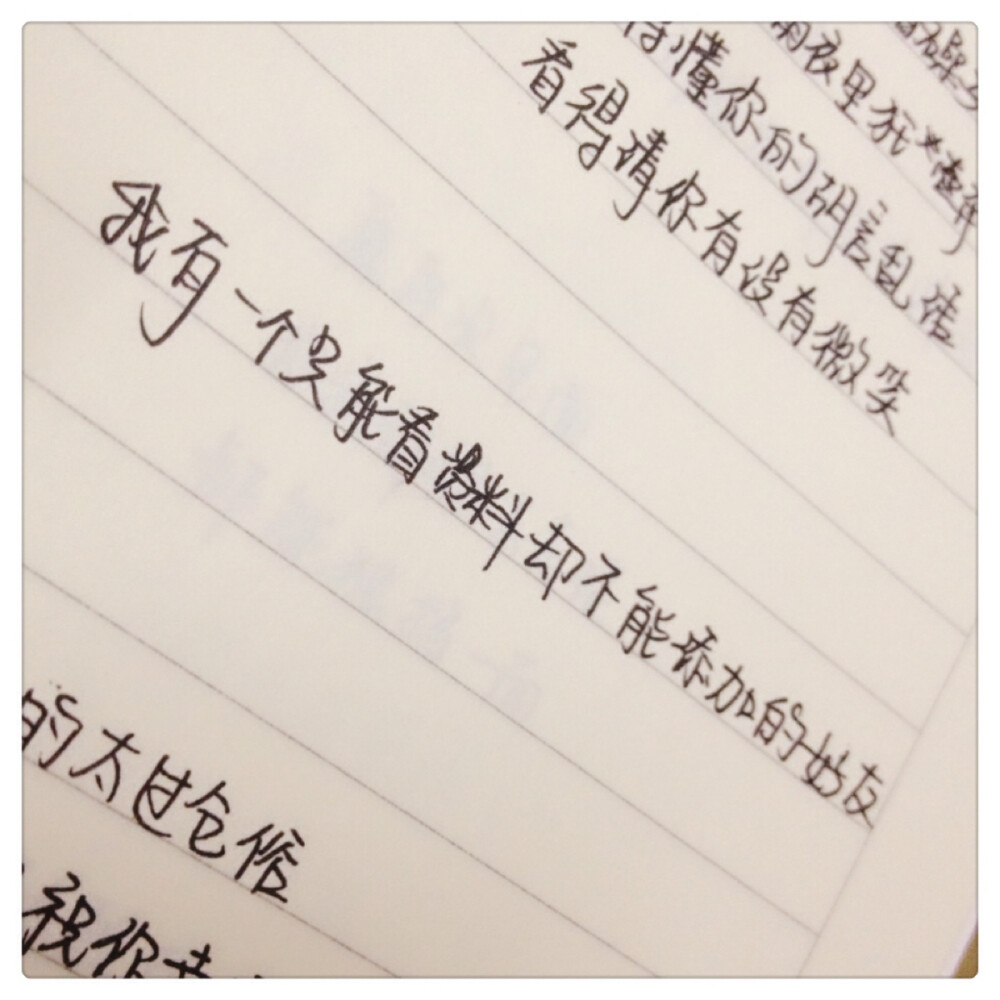 夜里
得懂你的胡言乱语
看得清你有没有微笑
我有一个只能看资料却不能添加的好友
的太过仓
祝你